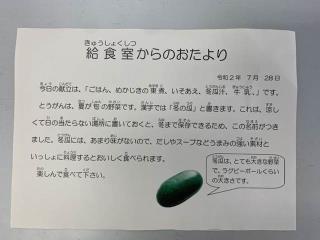 給食室からのおたより
令和2年 7月 28日
今日の献立は、「ごはん、めかじきの東煮、いそあえ、冬瓜汁、牛乳、」です。
とうがんは、夏が旬の野菜です。漢字では「冬の瓜」と書きます。これは、涼し
くて日の当たらない場所に置いておくと、冬まで保存できるため、この名前がつき
ました。冬瓜には、あまり味がないので、だしやスープなどうまみの強い素材と
いっしょに料理するとおいしく食べられます。
楽しんで食べて下さい。
冬瓜は、とても大きな野菜
で、ラグビーボールくらい
の大きさです。